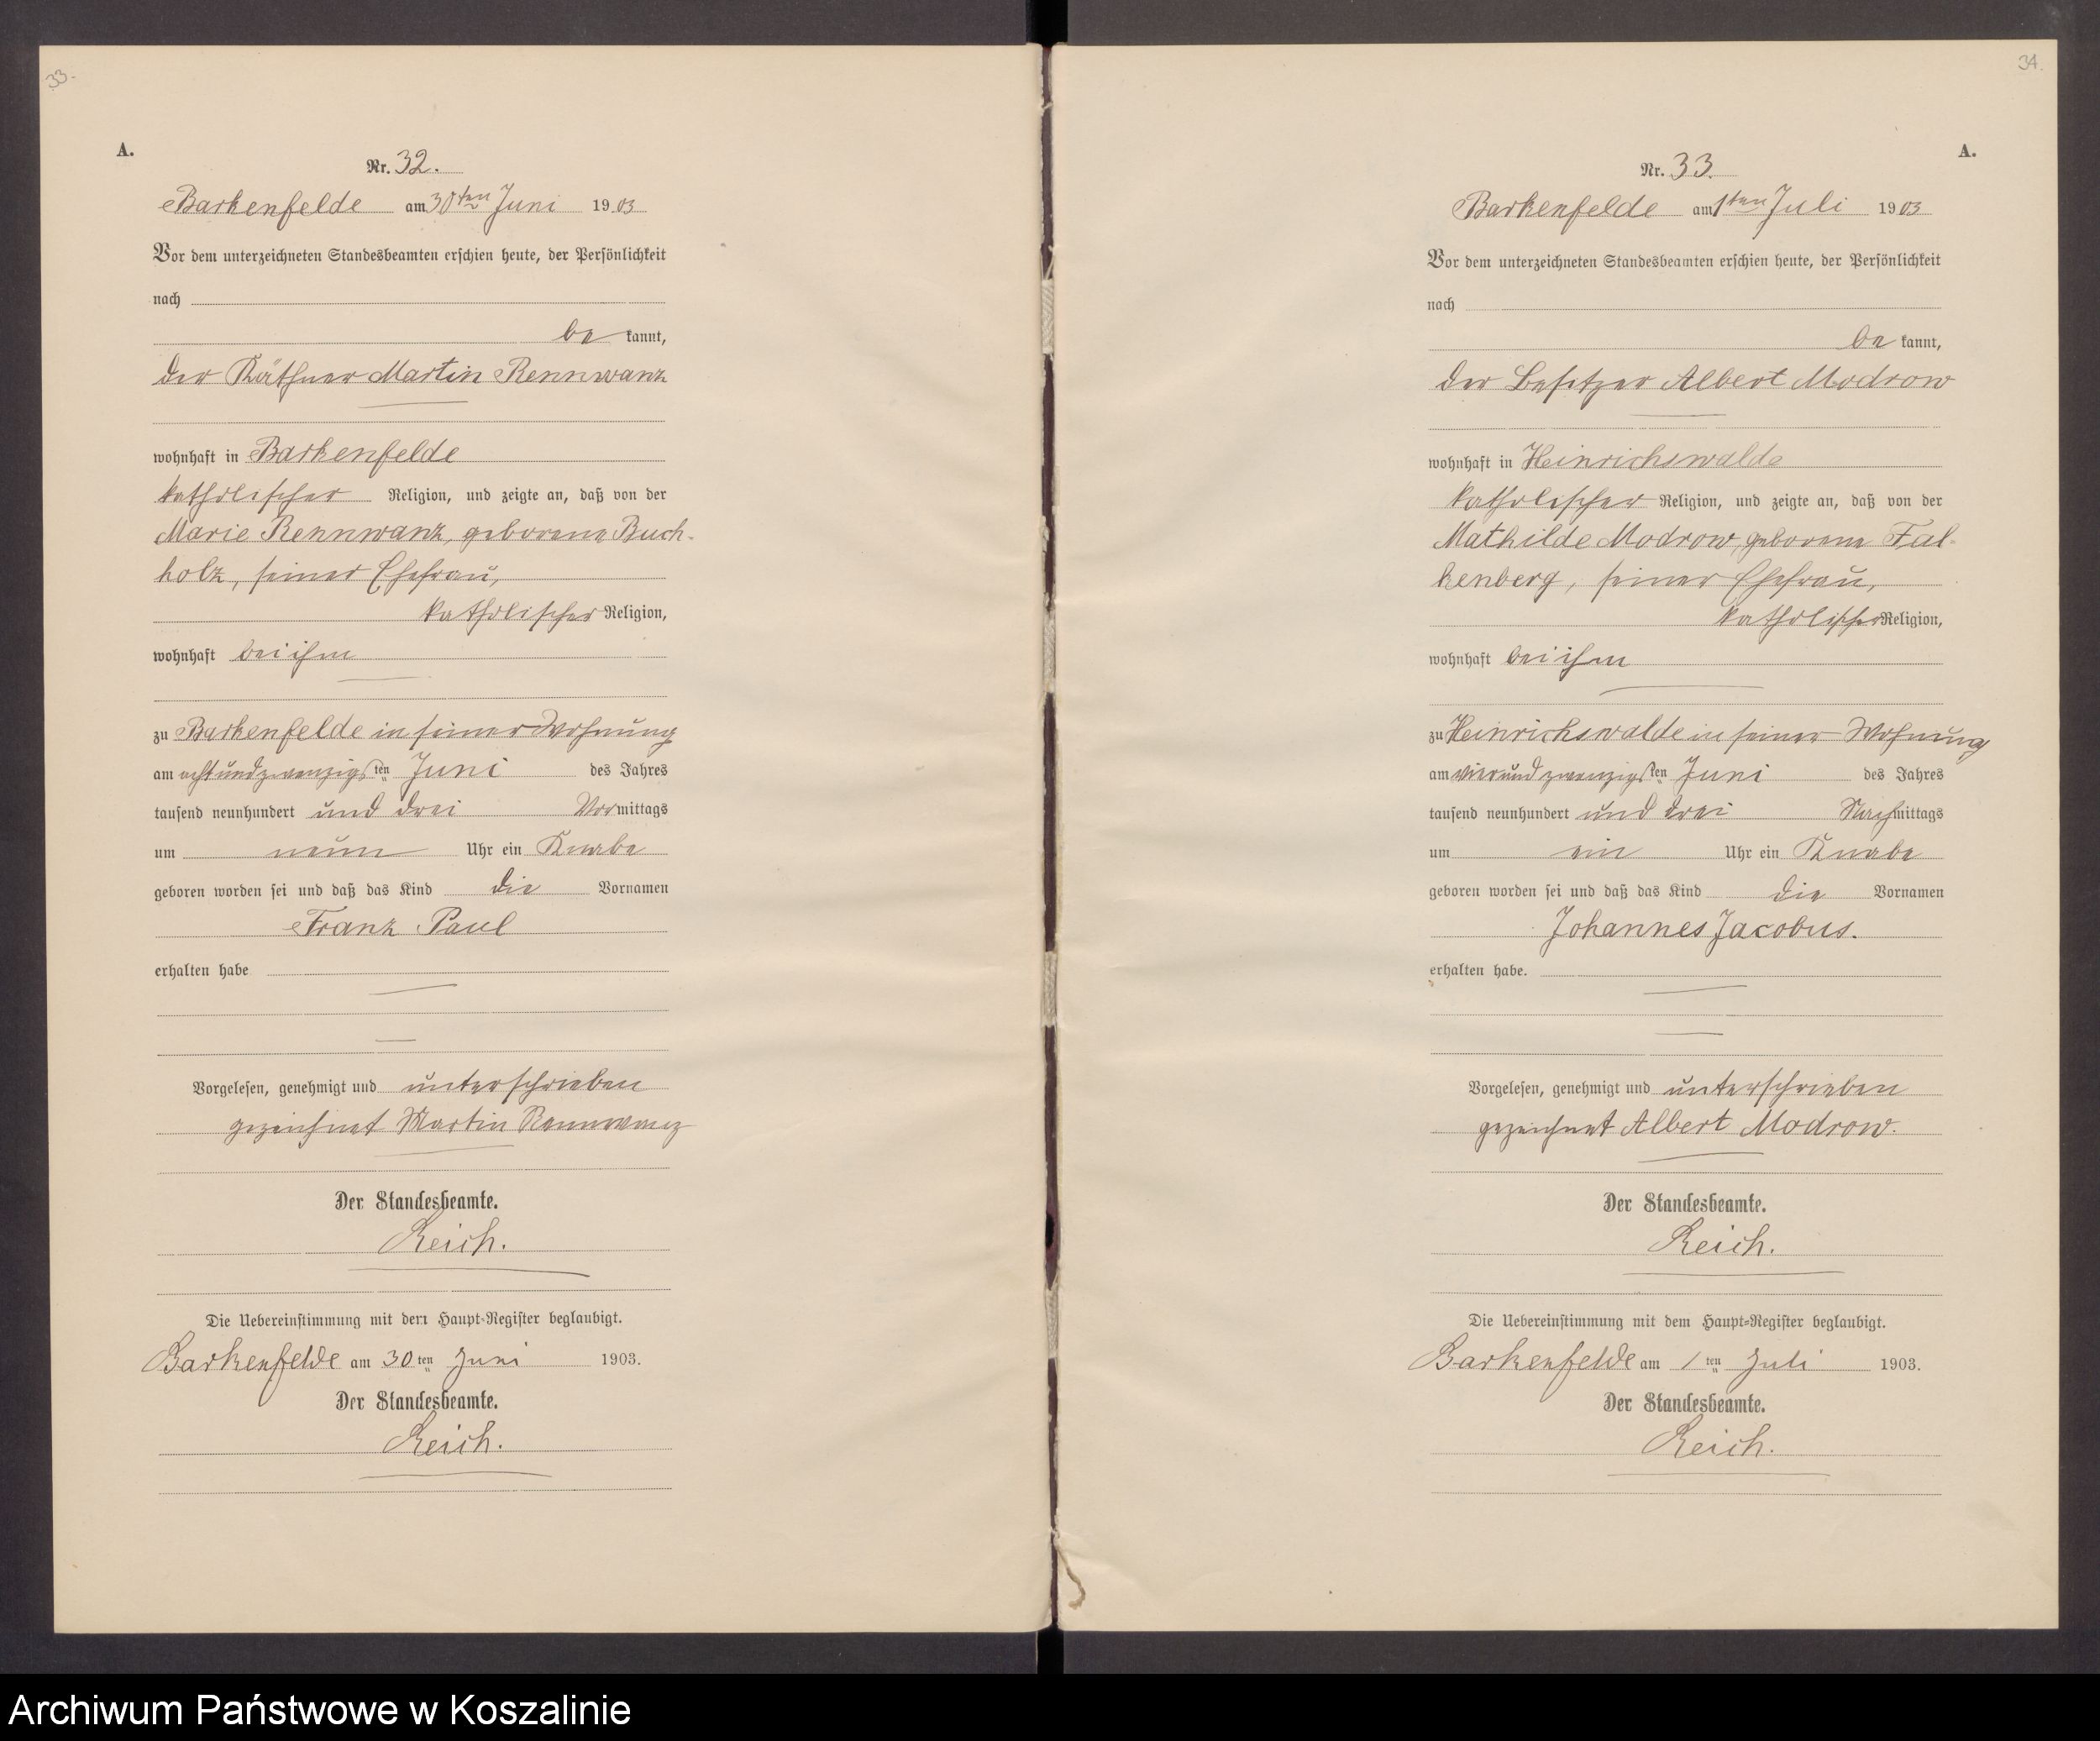 33.
A.
Nr. 32.
Barkenfelde am 30ten Juni 1903
Vor dem unterzeichneten Standesbeamten erschien heute, der Persönlichkeit
nach
be kannt,
der Käthner Martin Rennwanz
wohnhaft in Barkenfelde
katholischer Religion, und zeigte an, daß von der
Marie Rennwanz, geborene Buch-
holz, seiner Ehefrau,
katholischer Religion,
wohnhaft bei ihm
zu Barkenfelde in seiner Wohnung
am achtundzwanzigsten Juni des Jahres
tausend neunhundert und drei Vormittags
um neun Uhr ein Knabe
geboren worden sei und daß das Kind die Vornamen
Franz Paul
erhalten habe
Vorgelesen, genehmigt und unterschrieben
gezeichnet Martin Rennwanz
Der Standesbeamte.
Reich.
Die Uebereinstimmung mit dem Haupt-Register beglaubigt.
Barkenfelde am 30ten Juni 1903.
Der Standesbeamte.
Reich.
34.
A.
Nr. 33.
Barkenfelde am 1ten Juli 1903
Vor dem unterzeichneten Standesbeamten erschien heute, der Persönlichkeit
nach
be kannt,
der Besitzer Albert Modrow
wohnhaft in Heinrichswalde
katholischer Religion, und zeigte an, daß von der
Mathilde Modrow, geborene Fal-
kenberg, seiner Ehefrau,
katholischer Religion,
wohnhaft bei ihm
zu Heinrichswalde in seiner Wohnung
am vierundzwanzigsten Juni des Jahres
tausend neunhundert und drei Nachmittags
um ein Uhr ein Knabe
geboren worden sei und daß das Kind die Vornamen
Johannes Jacobus.
erhalten habe.
Vorgelesen, genehmigt und unterschrieben
gezeichnet Albert Modrow.
Der Standesbeamte.
Reich.
Die Uebereinstimmung mit dem Haupt-Register beglaubigt.
Barkenfelde am 1ten Juli 1903.
Der Standesbeamte.
Reich.
Archiwum Państwowe w Koszalinie